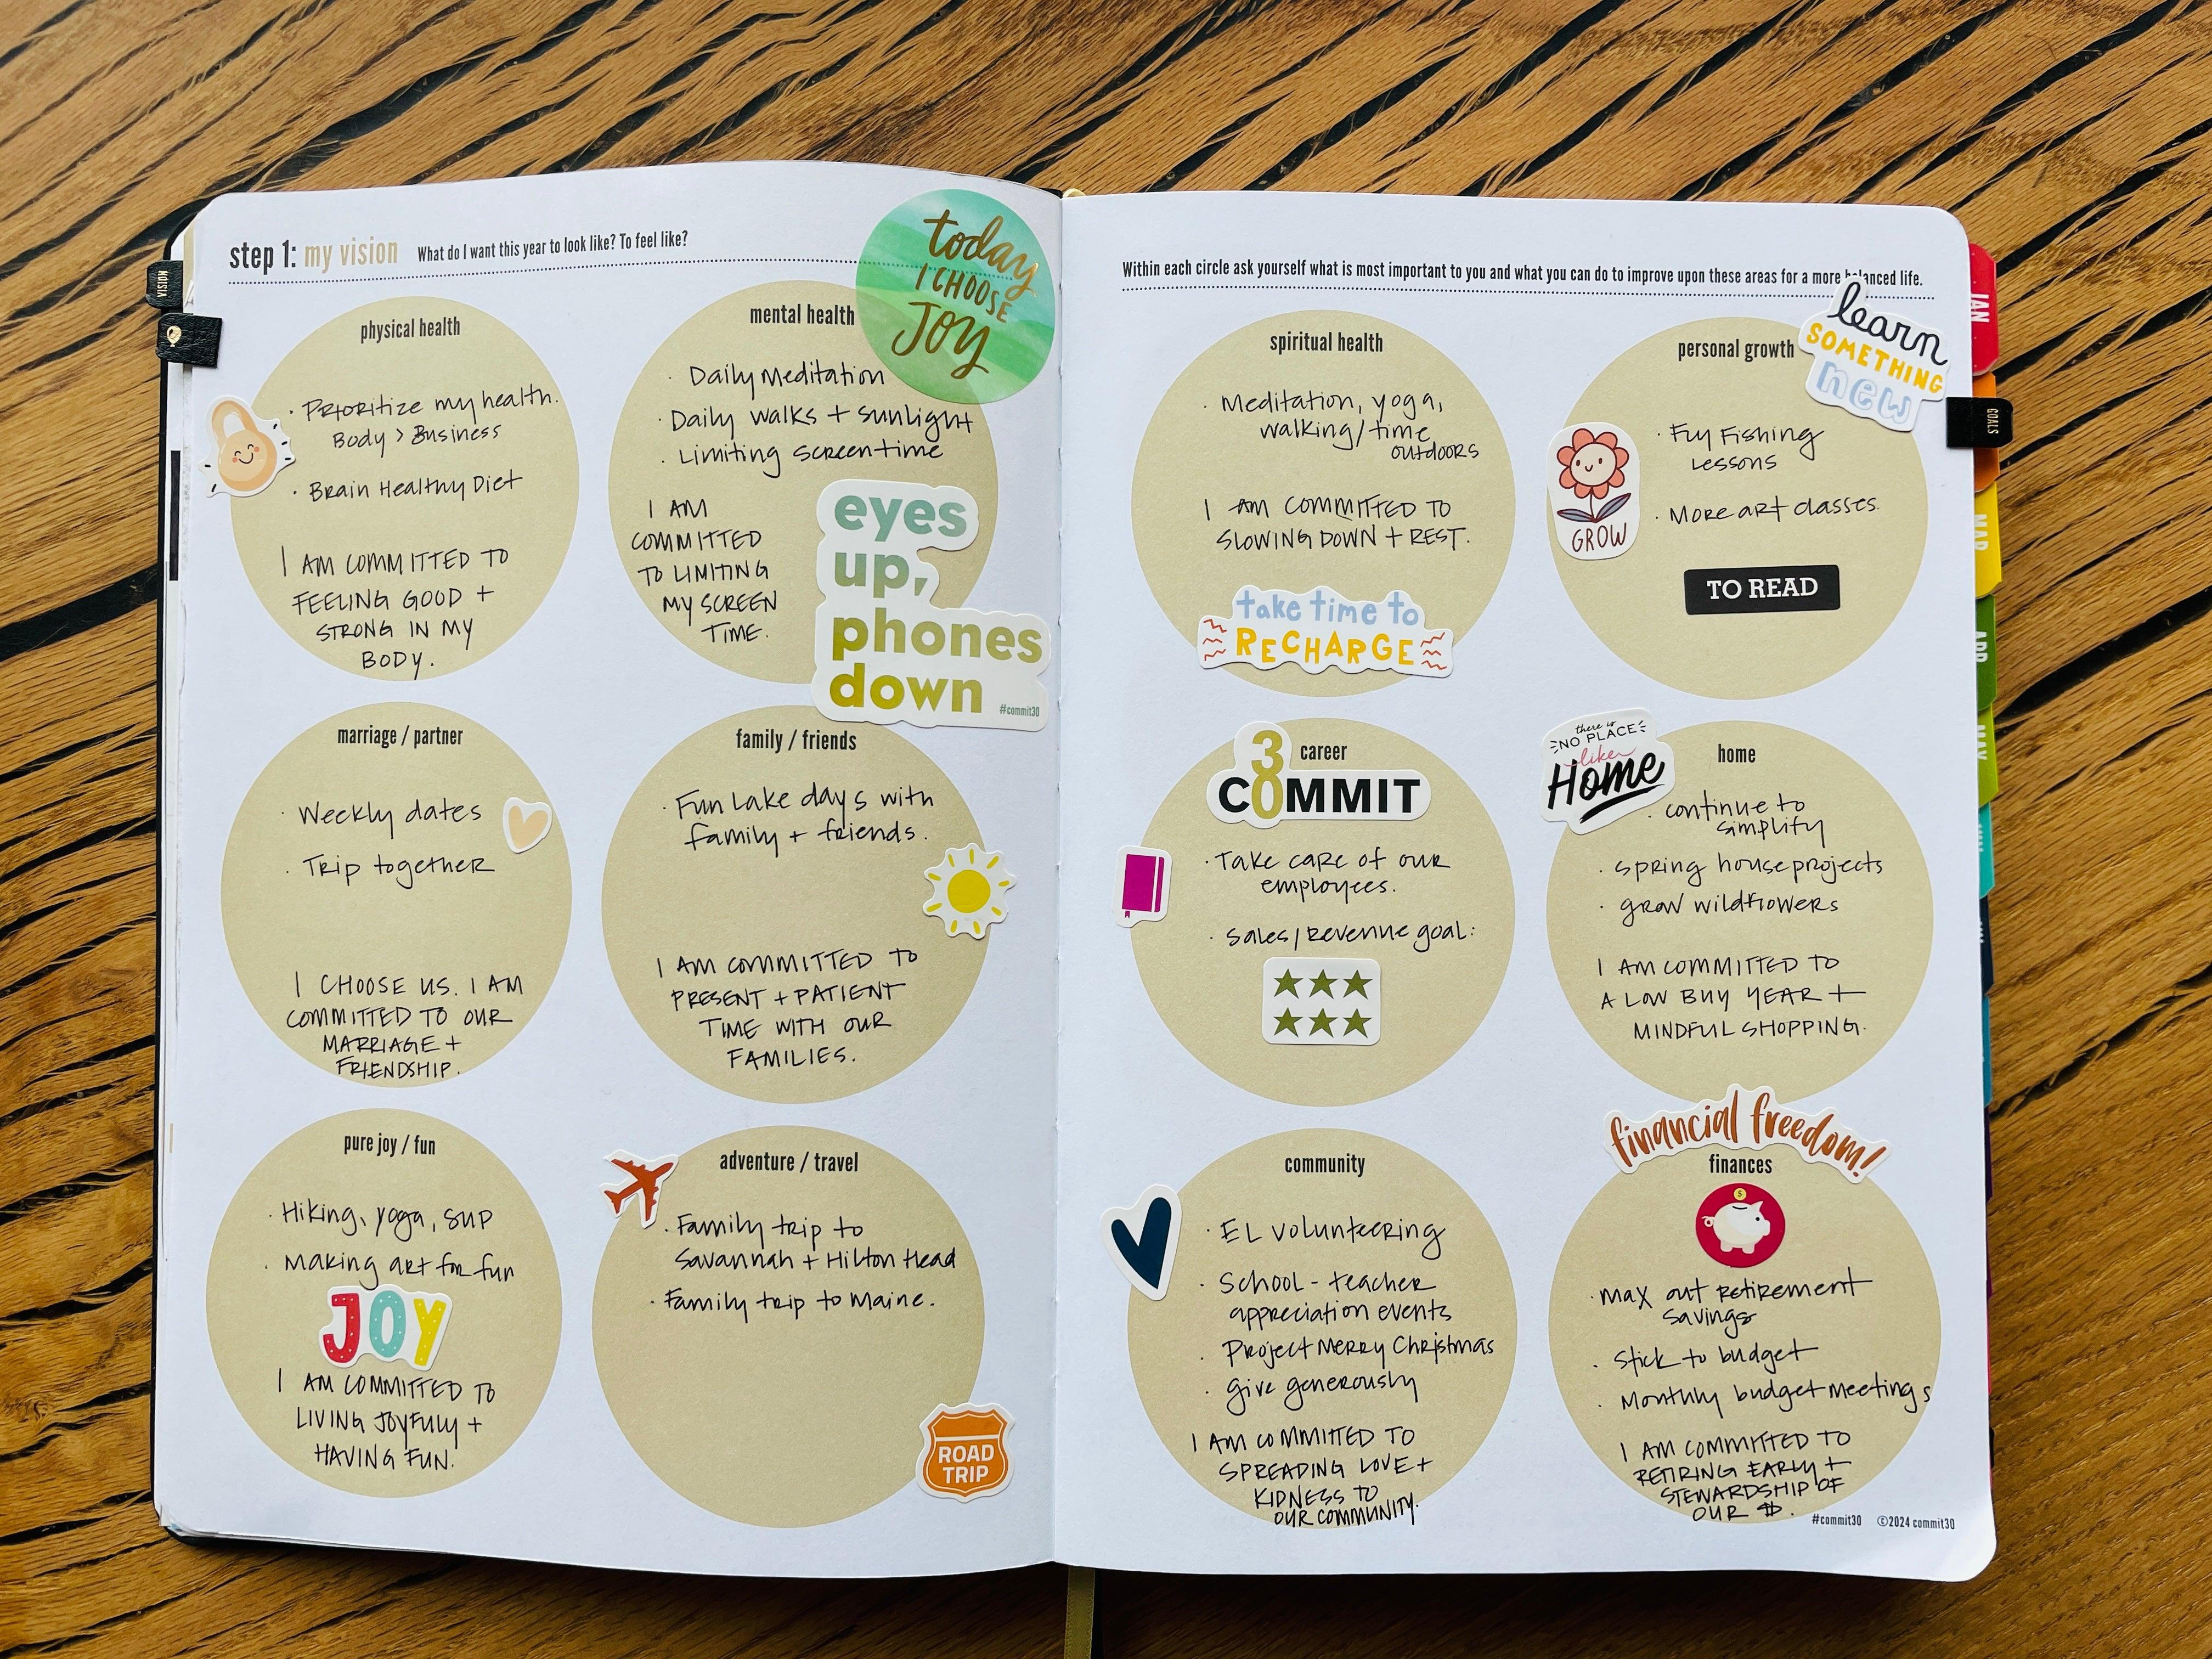 step 1: my vision What do I want this year to look like? To feel like?
today
I CHOOSE
JOY
VISION
physical health
· Prioritize my health.
Body > Business
· Brain Healthy Diet
I AM COMMITTED TO
FEELING GOOD +
STRONG IN MY
BODY.
mental health
· Daily Meditation
· Daily walks + sunlight
· Limiting screen time
I AM
COMMITTED
TO LIMITING
MY SCREEN
TIME.
eyes
up,
phones
down
#commit30
marriage / partner
· Weekly dates
· Trip together
I CHOOSE US. I AM
COMMITTED TO OUR
MARRIAGE +
FRIENDSHIP.
family / friends
· Fun Lake days with
family + friends.
I AM COMMITTED TO
PRESENT + PATIENT
TIME WITH OUR
FAMILIES.
pure joy / fun
· Hiking, yoga, SUP
· Making art for fun
JOY
I AM COMMITTED TO
LIVING JOYFULLY +
HAVING FUN.
adventure / travel
· Family trip to
Savannah + Hilton Head
· Family trip to Maine.
ROAD
TRIP
Within each circle ask yourself what is most important to you and what you can do to improve upon these areas for a more balanced life.
spiritual health
· Meditation, yoga,
walking/time
outdoors
I AM COMMITTED TO
SLOWING DOWN + REST.
take time to
RECHARGE
personal growth
learn
SOMETHING
new
· Fly Fishing
Lessons
· More art classes.
GROW
TO READ
30
COMMIT
career
· Take care of our
employees.
· Sales/Revenue goal:
there is
NO PLACE
like
Home
home
· continue to
simplify
· spring house projects
· grow wildflowers
I AM COMMITTED TO
A LOW BUY YEAR +
MINDFUL SHOPPING.
community
· EL volunteering
· School - teacher
appreciation events
· Project Merry Christmas
· give generously
I AM COMMITTED TO
SPREADING LOVE +
KIDNESS TO
OUR COMMUNITY.
financial freedom!
finances
$
· Max out retirement
savings
· Stick to budget
· Monthly budget meetings
I AM COMMITTED TO
RETIRING EARLY +
STEWARDSHIP OF
OUR $.
#commit30 ©2024 commit30
JAN
GOALS
MAR
APR
MAY